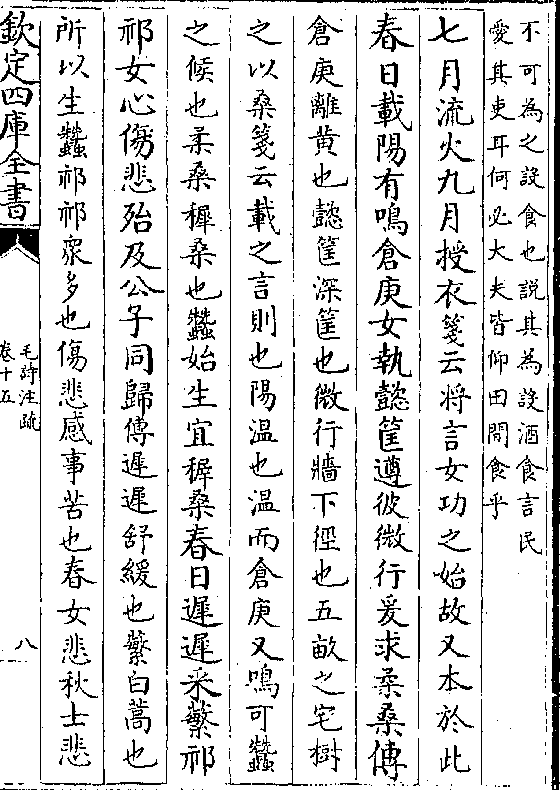 不可為之設食也說其為設酒食言民
愛其吏耳何必大夫皆仰田閒食乎
七月流火九月授衣箋云將言女功之始故又本於此
春日載陽有鳴倉庚女執懿筐遵彼微行爰求柔桑傳
倉庚離黄也懿筐深筐也微行牆下徑也五畝之宅樹
之以桑箋云載之言則也陽温也温而倉庚又鳴可蠶
之候也柔桑穉桑也蠶始生宜穉桑春日遲遲采蘩祁
祁女心傷悲殆及公子同歸傳遲遲舒緩也蘩白蒿也
所以生蠶祁祁衆多也傷悲感事苦也春女悲秋士悲
欽定四庫全書
毛詩注疏
卷十五
八